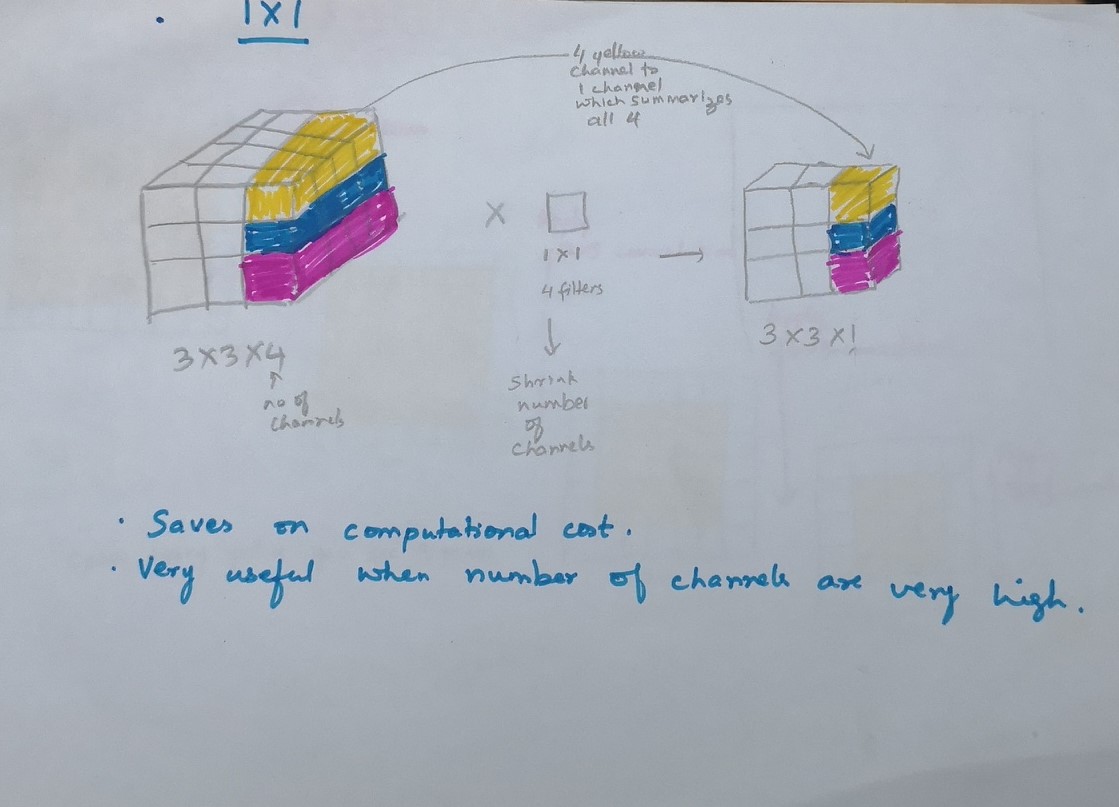 . 1×1
4 yellow
channel to
1 channel
which summarizes
all 4
×
1×1
4 filters
shrink
number
of
channels
3×3×4
no of
channels
3×3×1
. Saves on computational cost.
. Very useful when number of channels are very high.